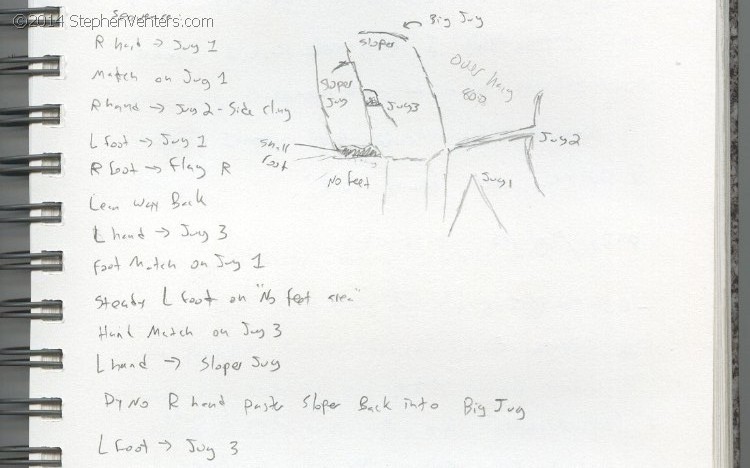 ©2014 StephenVenters.com
Sequence:
R hand → Jug 1
Match on Jug 1
R hand → Jug 2 - Side cling
L foot → Jug 1
R foot → Flag R
Lean way Back
L hand → Jug 3
Foot Match on Jug 1
Steady L foot on "No feet area"
Hand Match on Jug 3
L hand → Sloper Jug
Dyno R hand paster Sloper Back into Big Jug
L foot → Jug 3
Big Jug
Sloper
Over Hang
Sloper
Jug
Jug 3
Small
foot
No feet
Jug 2
Jug 1